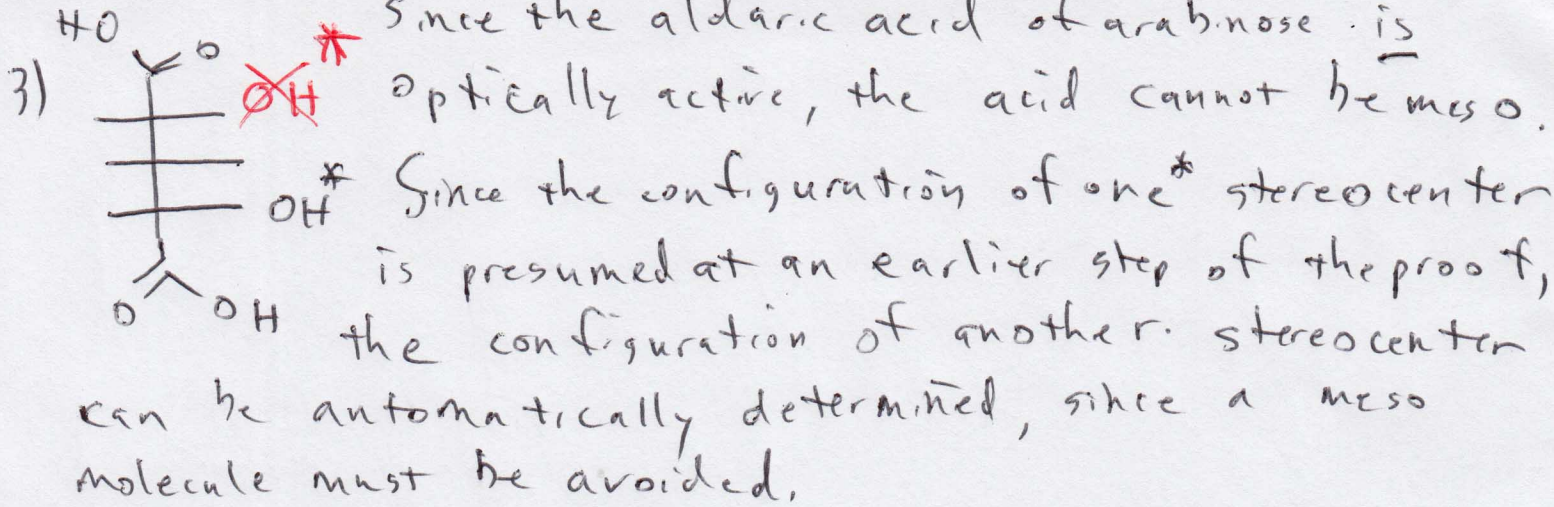 HO O * Since the aldaric acid of arabinose is
3) OH optically active, the acid cannot be meso.
OH* Since the configuration of one* stereocenter
is presumed at an earlier step of the proof,
O OH the configuration of another stereocenter
can be automatically determined, since a meso
molecule must be avoided.